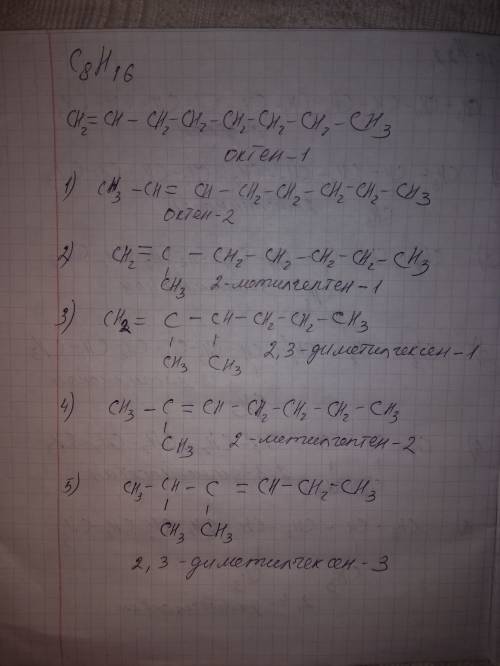 C8H16
CH2=CH-CH2-CH2-CH2-CH2-CH2-CH3
октен-1
1) CH3-CH=CH-CH2-CH2-CH2-CH2-CH3
октен-2
2) CH2=C-CH2-CH2-CH2-CH2-CH3
CH3 2-метилгептен-1
3) CH2=C-CH-CH2-CH2-CH3
CH3 CH3 2,3-диметилгексен-1
4) CH3-C=CH-CH2-CH2-CH2-CH3
CH3 2-метилгептен-2
5) CH3-CH-C=CH-CH2-CH3
CH3 CH3
2,3-диметилгексен-3